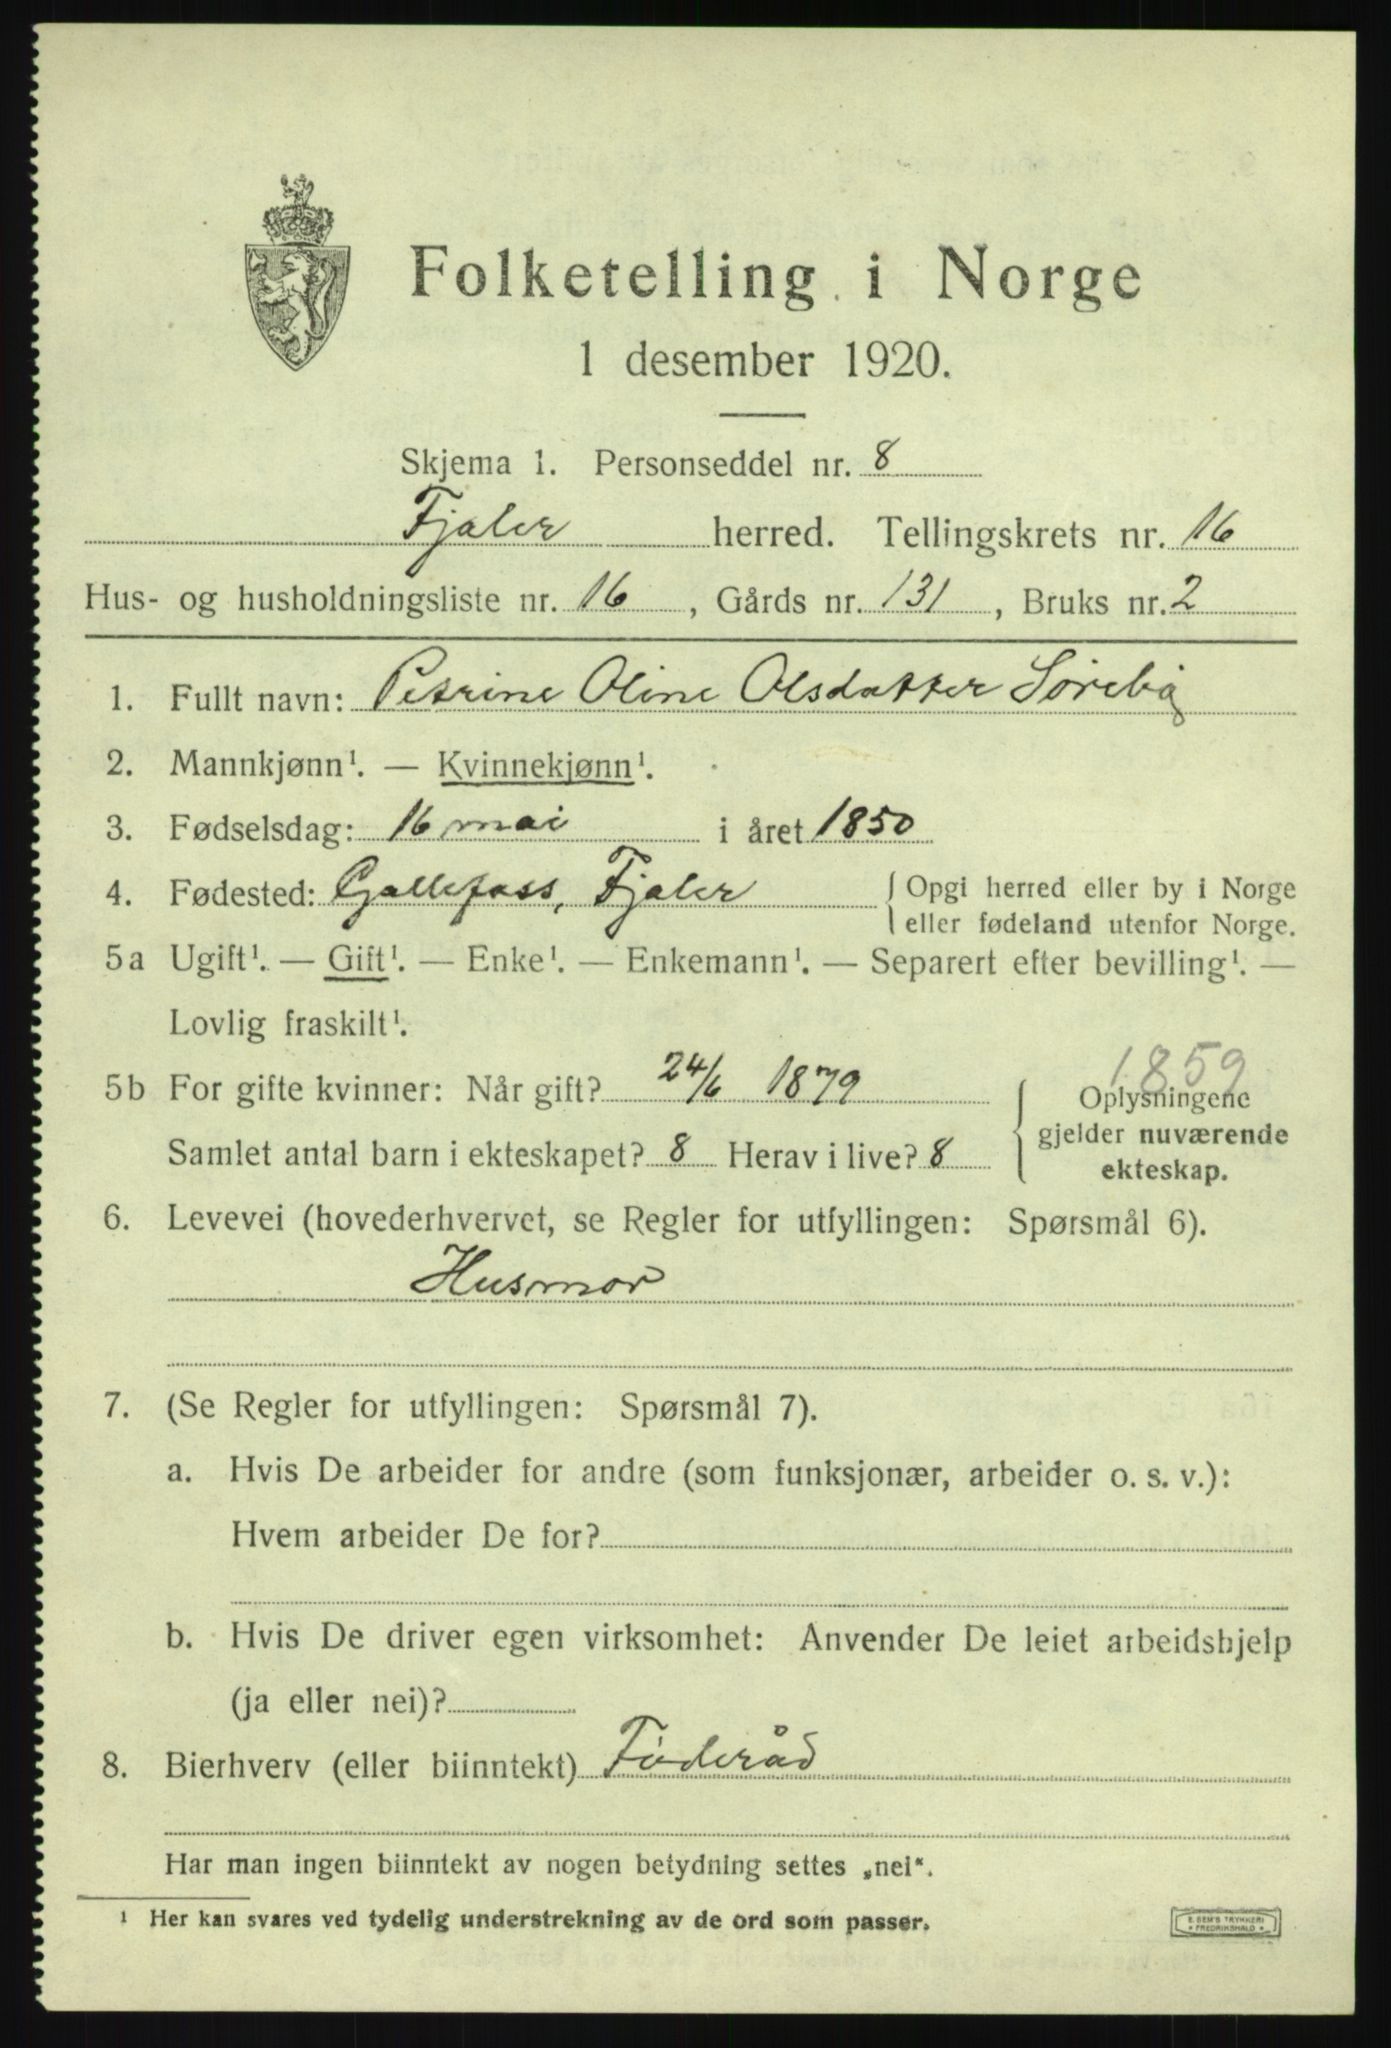 Folketelling i Norge
1 desember 1920.
Skjema 1. Personseddel nr. 8
Fjaler herred. Tellingskrets nr. 16
Hus- og husholdningsliste nr. 16, Gårds nr. 131, Bruks nr. 2
1. Fullt navn: Petrine Oline Olsdatter Sørebø
2. Mannkjønn¹. — Kvinnekjønn¹.
3. Fødselsdag: 16 mai i året 1850
4. Fødested: Gallefoss, Fjaler { Opgi herred eller by i Norge
eller fødeland utenfor Norge.
5a Ugift¹. — Gift¹. — Enke¹. — Enkemann¹. — Separert efter bevilling¹. —
Lovlig fraskilt¹.
1859
5b For gifte kvinner: Når gift? 24/6 1879 { Oplysningene
gjelder nuværende
Samlet antal barn i ekteskapet? 8 Herav i live? 8
ekteskap.
6. Levevei (hovederhvervet, se Regler for utfyllingen: Spørsmål 6).
Husmor
7. (Se Regler for utfyllingen: Spørsmål 7).
a. Hvis De arbeider for andre (som funksjonær, arbeider o. s. v.):
Hvem arbeider De for?
b. Hvis De driver egen virksomhet: Anvender De leiet arbeidshjelp
(ja eller nei)?
8. Bierhverv (eller biinntekt) Føderåd
Har man ingen biinntekt av nogen betydning settes „nei“.
¹ Her kan svares ved tydelig understrekning av de ord som passer.
E. SEM'S TRYKKERI
* FREDRIKSHALD *